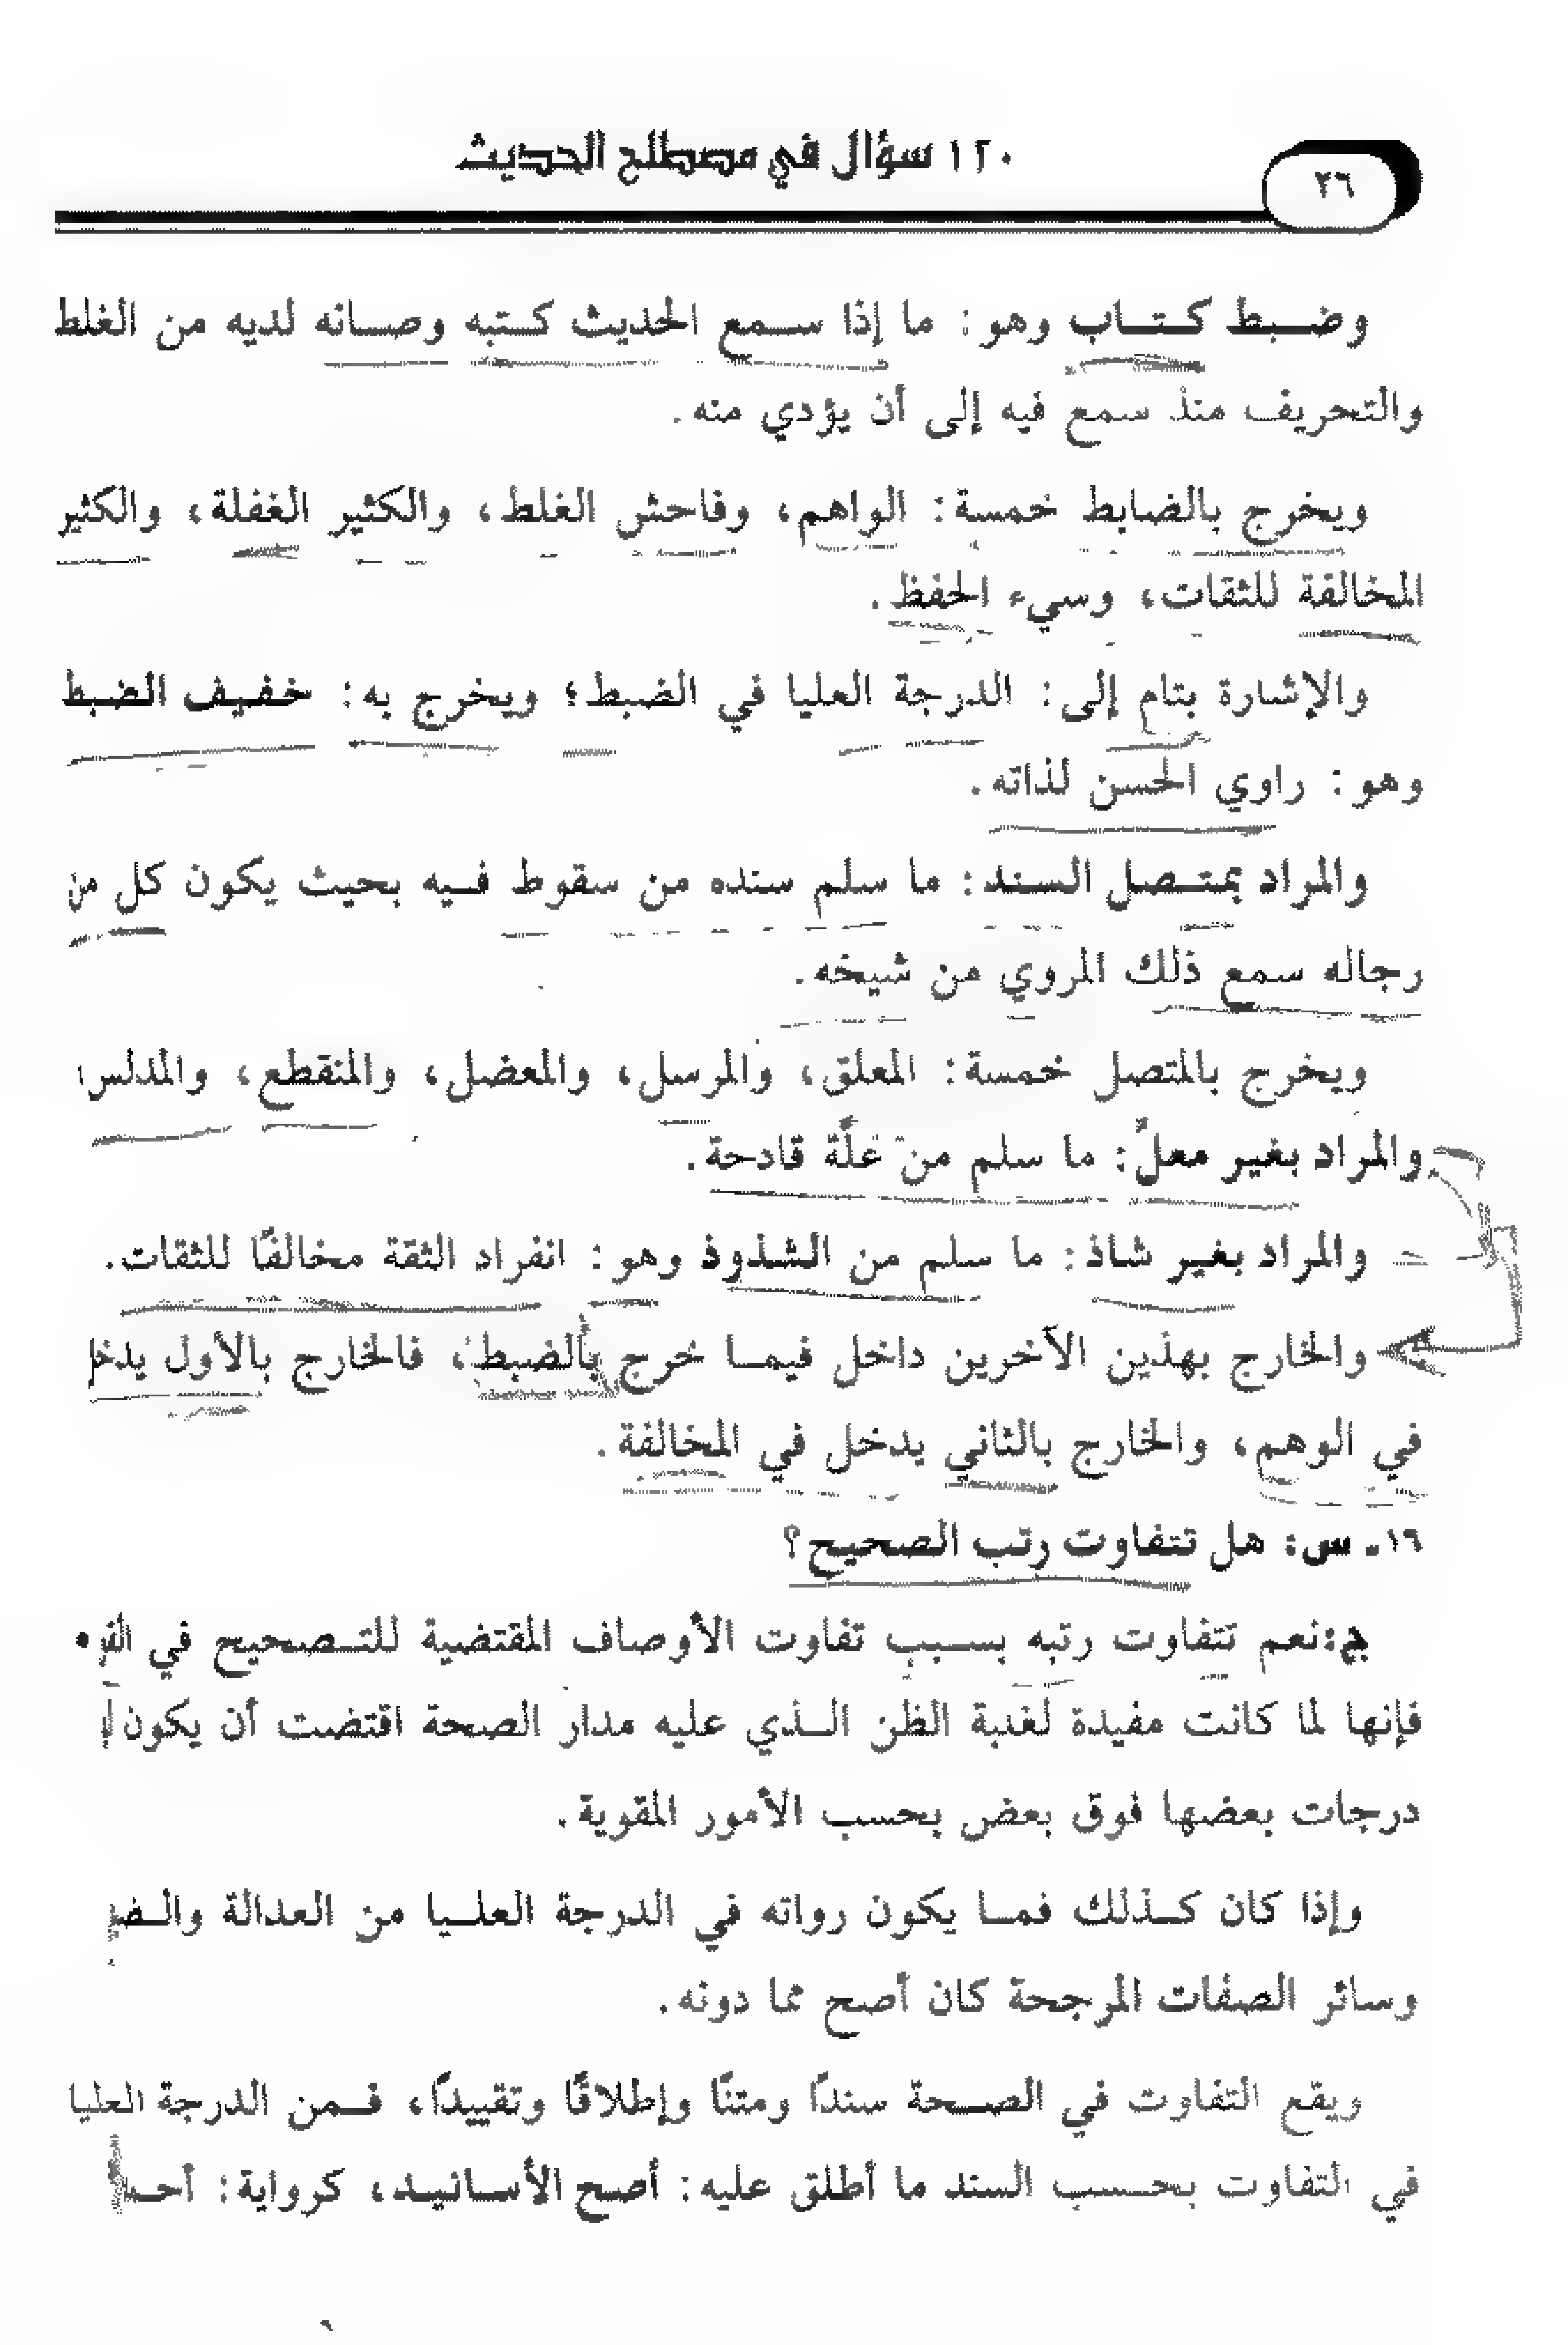 ٢٦
١٢٠ سؤال في مصطلح الحديث
وضبط كتاب وهو: ما إذا سمع الحديث كتبه وصانه لديه من الغلط
والتحريف منذ سمع فيه إلى أن يؤدي منه.
ويخرج بالضابط خمسة: الواهم، وفاحش الغلط، والكثير الغفلة، والكثير
المخالفة للثقات، وسيء الحفظ.
والإشارة بتام إلى: الدرجة العليا في الضبط؛ ويخرج به: خفيف الضبط
وهو: راوي الحسن لذاته.
والمراد بمتصل السند: ما سلم سنده من سقوط فيه بحيث يكون كل من
رجاله سمع ذلك المروي من شيخه.
ويخرج بالمتصل خمسة: المعلق، والمرسل، والمعضل، والمنقطع، والمدلس
والمراد بغير معلّ: ما سلم من علّة قادحة.
والمراد بغير شاذ: ما سلم من الشذوذ وهو: انفراد الثقة مخالفًا للثقات.
والخارج بهذين الآخرين داخل فيما خرج بالضبط، فالخارج بالأول يدخل
في الوهم، والخارج بالثاني يدخل في المخالفة.
١٦ـ س: هل تتفاوت رتب الصحيح؟
ج: نعم تتفاوت رتبه بسبب تفاوت الأوصاف المقتضية للتصحيح في
فإنها لما كانت مفيدة لغلبة الظن الذي عليه مدار الصحة اقتضت أن يكون
درجات بعضها فوق بعض بحسب الأمور المقوية.
وإذا كان كذلك فما يكون رواته في الدرجة العليا من العدالة
وسائر الصفات المرجحة كان أصح مما دونه.
ويقع التفاوت في الصحة سندًا ومتنًا وإطلاقًا وتقييدًا، فمن الدرجة العليا
في التفاوت بحسب السند ما أطلق عليه: أصح الأسانيد، كرواية: